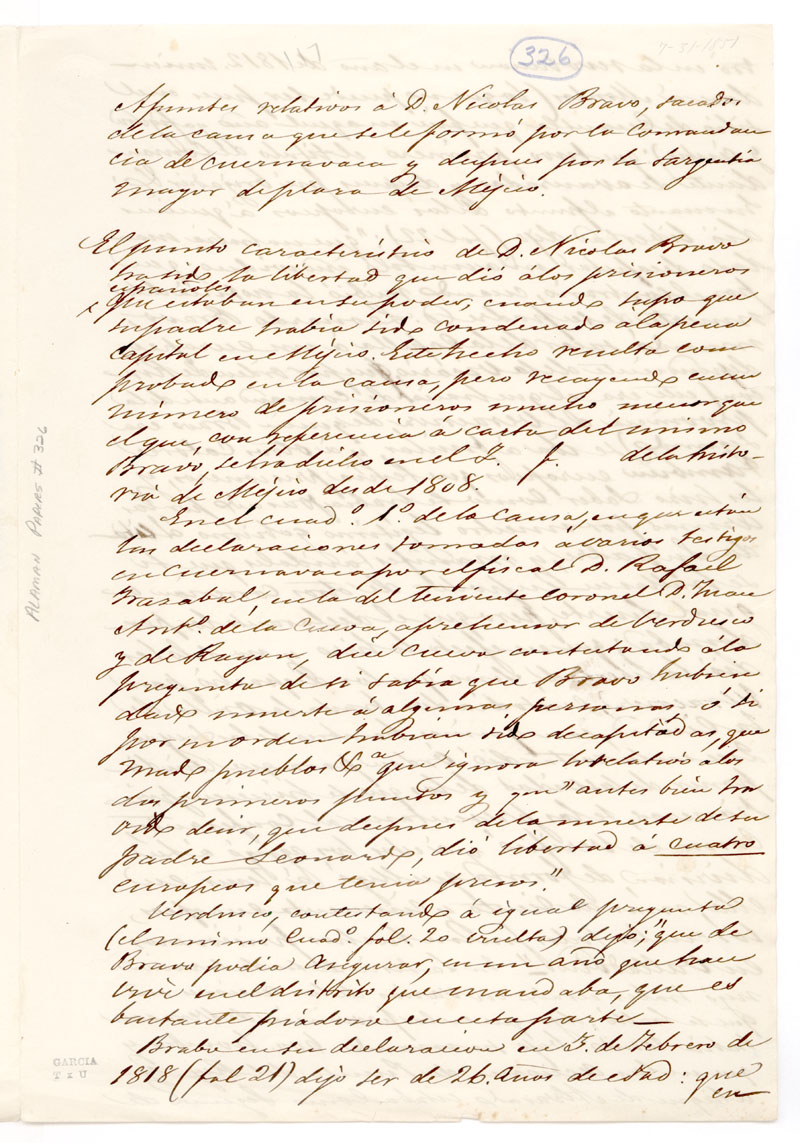 326
7-31-1851
Apuntes relativos á D. Nicolas Bravo, sacados
de la causa que se le formó por la Comandan
cia de Cuernavaca y despues por la Sargentia
mayor de plaza de Méjico.
El punto caracteristico de D. Nicolas Bravo
ha sido la libertad que dió á los prisioneros
españoles
que estaban en su poder, cuando supo que
su padre habia sido condenado á la pena
capital en Méjico. Este hecho resulta com
probado en la causa, pero recayendo en un
número de prisioneros mucho menor que
el que, con referencia á carta del mismo
Bravo, se ha dicho en el T. f. de la histo-
ria de Méjico desde 1808.
En el cuad.º 1.º de la causa, en que están
las declaraciones tomadas á varios testigos
en Cuernavaca por el fiscal D. Rafael
Irazabal, en la del teniente coronel D. Juan
Ant.º de la Cueva, aprehensor de Verdusco
y de Rayon, dice Cueva contestando á la
pregunta de si sabia que Bravo hubiera
dado muerte á algunas personas, ó si
por su orden habian sido decapitadas, que
mado pueblos &.ª que ignora lo relativo á los
dos primeros puntos y que "antes bien ha
oido decir, que despues de la muerte de su
padre Leonardo, dió libertad á cuatro
europeos que tenia presos."
Verdusco, contestando á igual pregunta
(el mismo Cuad.º fol. 20 vuelta) dijo; "que de
Bravo podia asegurar, en un año que hace
vive en el distrito que mandaba, que es
bastante piadoso en esta parte_
Brabo en su declaracion en 7. de Febrero de
1818 (fol 21) dijo ser de 26. años de edad: que
en
ALAMAN PAPERS # 326
GARCIA